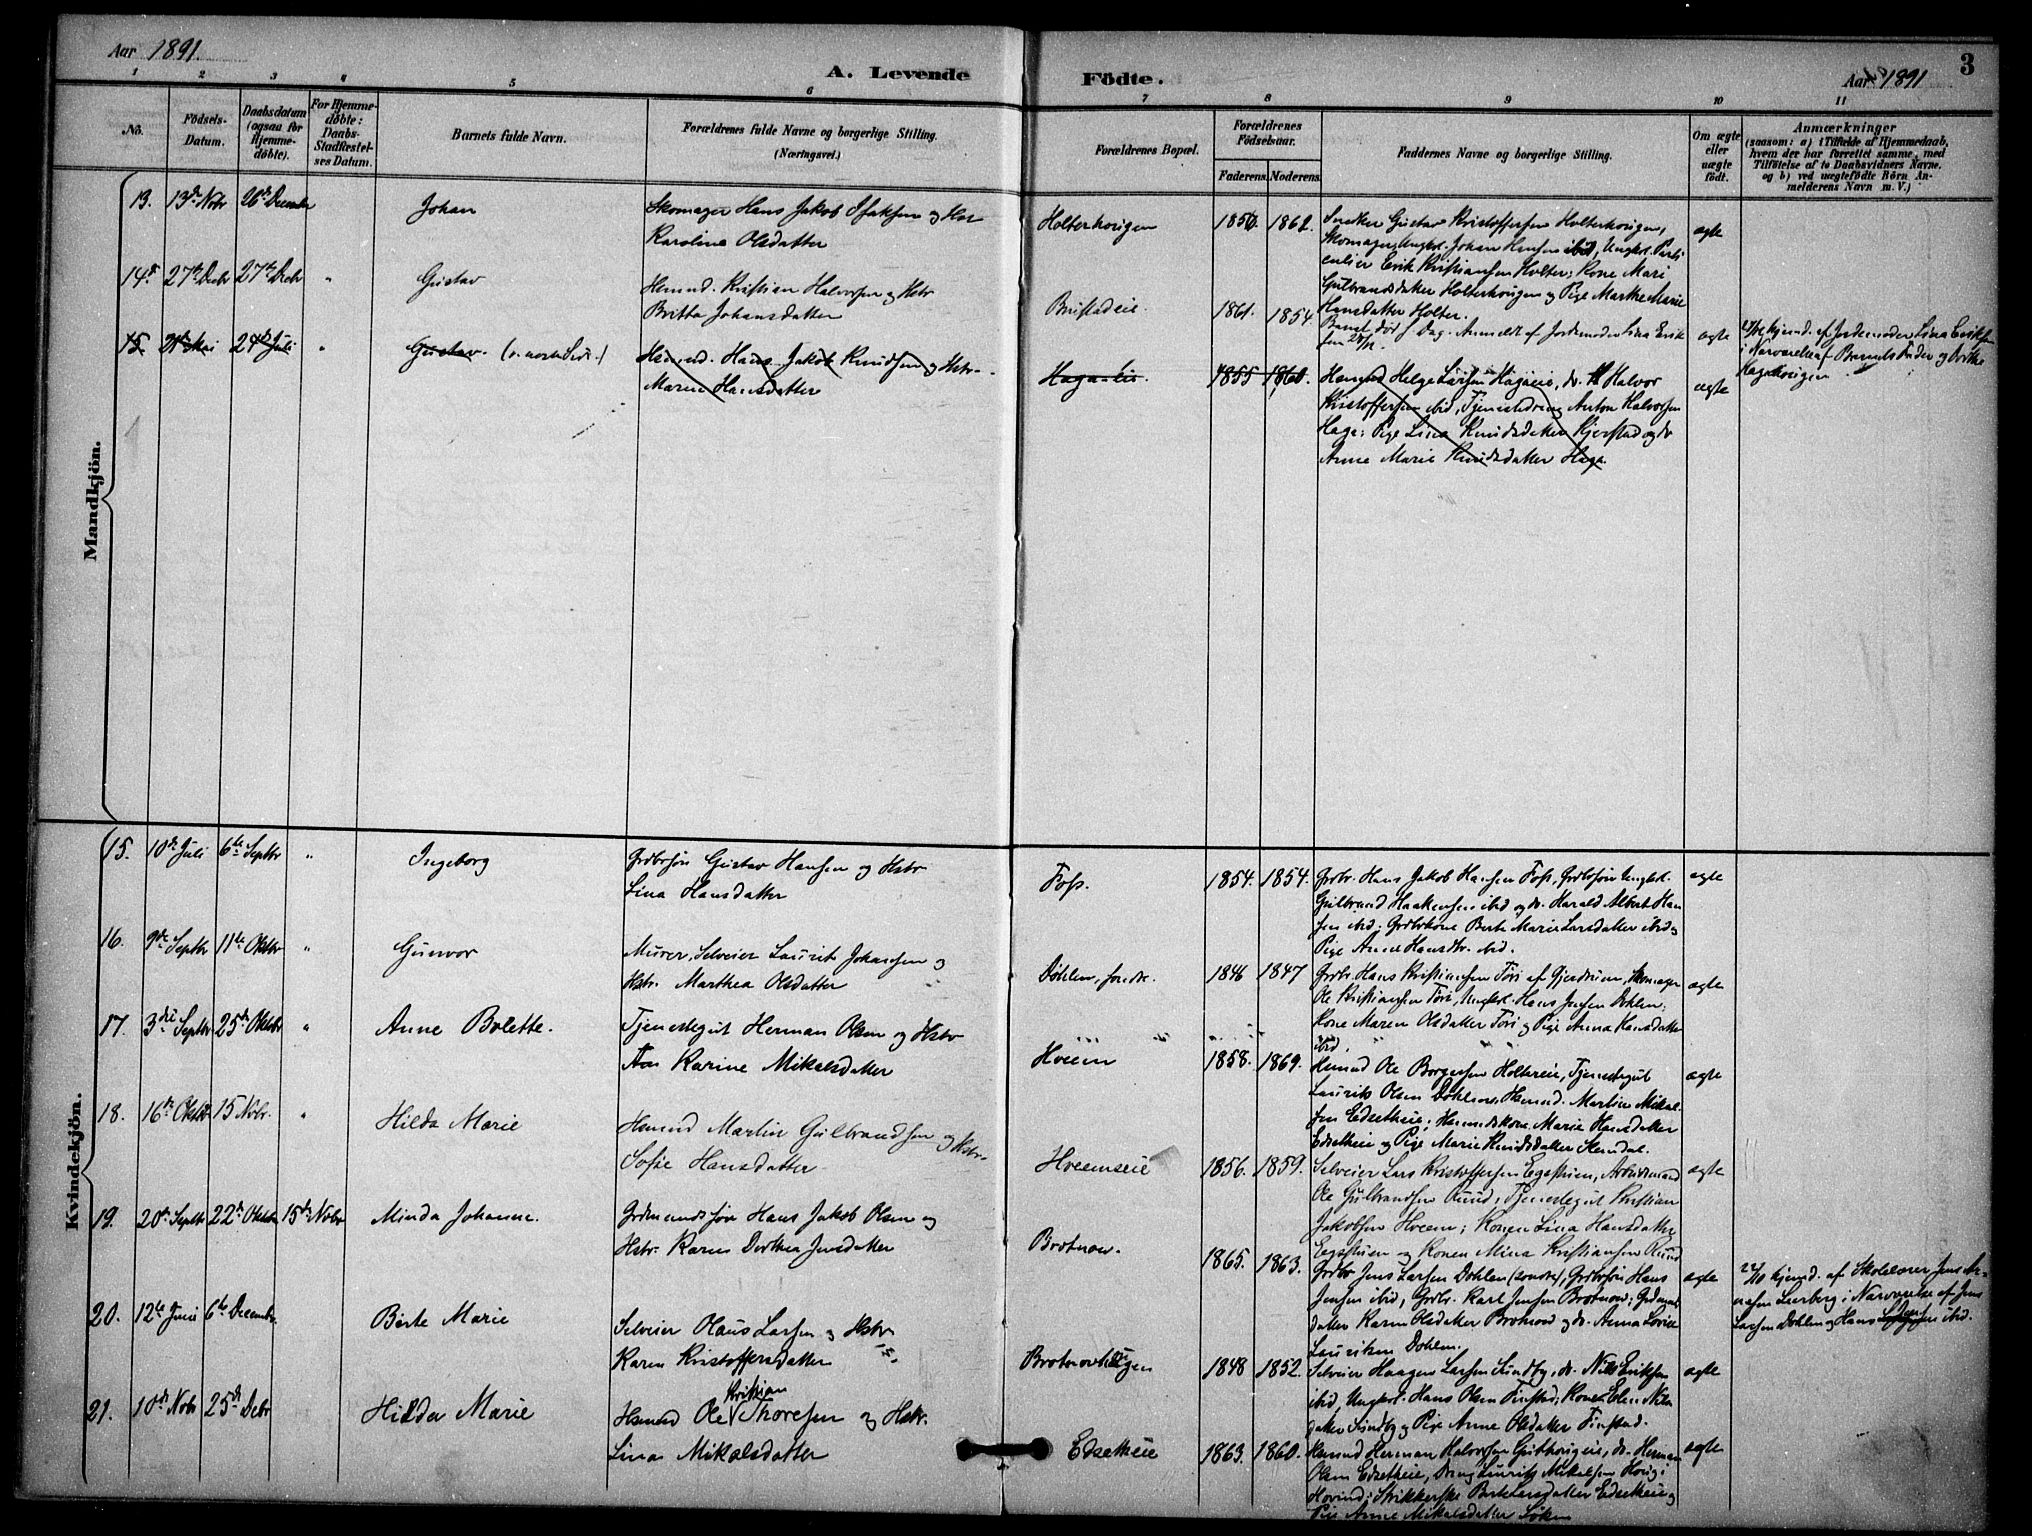 Aar 1891.
A. Levende Födte.
Aar 1891
3
1 2 3 4 5 6 7 8 9 10 11
No.
Födsels-Datum.
Daabsdatum (ogsaa for Hjemme-döbte).
For Hjemme-döbte: Daabs-Stadfæstel-ses Datum.
Barnets fulde Navn.
Forældrenes fulde Navne og borgerlige Stilling.
(Næringsvei.)
Forældrenes Bopæl.
Forældrenes Födselsaar.
Faderens. Moderens.
Faddernes Navne og borgerlige Stilling.
Om ægte eller uægte födt.
Anmærkninger
(saasom: a) i Tilfælde af Hjemmedaab,
hvem der har forrettet samme, med
Tilföielse af to Daabsvidners Navne.
og b) ved uægtefödte Börn An-
melderens Navn m. V.)
Mandkjön.
13. 13de Novbr 26de December Johan
Skomager Hans Jakob Isaksen og Hstr
Karoline Olsdatter
Holterhougen 1850. 1862.
Snedker Gustav Kristoffersen Holterhougen,
Skomager, Ungkl. Johan Hansen ibid, Ungkl. Parti
culier Erik Kristiansen Holter; Kone Mari
Gulbrandsdatter Holterhougen og Pige Marthe Marie
Hansdatter Holter.
ægte
14. 27de Decbr 27de Decbr " Gustav
Hsmnd. Kristian Halvorsen og Hstr
Britta Johansdatter
1861. 1854.
Barnet död s. Dag. Anmeldt af Jordemoder Lina Erik
sen
ægte
hjemd. af Jordemoder Lina Eriksen
i Nærværelse af Barnets Fader og
Hagahougen
15. 21de Mai 24de Juli " Gustav. (v. næste Side.)
Hsmnd. Hans Jakob Knudsen og Hstr.
Maren Hansdatter
Hagaeie. 1855 1860.
Hsmnd Helge Larsen Hagaeie, do. Halvor
Kristoffersen ibid, Tjenestedreng Anton Halvorsen
Haga; Pige Lina Knudsdatter Kjerstad og do
Anne Marie Knudsdatter Haga.
ægte
Kvindekjön.
15. 10de Juli 6te Septbr " Ingeborg
Grdbrsön Gustav Hansen og Hstr
Lina Hansdatter
Foss. 1854. 1854.
Grdbr. Hans Jakob Hansen Foss, Grdbrsön Ungkl.
Gulbrand Haakensen ibid og do. Harald Albert Han
sen ibid; Grdbrkone Berte Marie Larsdatter ibid og
Pige Anne Hansdtr. ibid.
ægte
16. 9de Septbr 11te Oktbr " Gunvor
Murer, Selveier Laurits Johansen og
Hstr. Marthea Olsdatter
Döhlen, söndre. 1846 1847
Grdbr. Hans Kristiansen Töri af Gjerdrum, Skomager
Ole Kristiansen Töri, Ungkl. Hans Jensen Dohlen;
Kone Maren Olsdatter Töri og Pige Anna Hansdatter
ibid.
ægte
17. 3die Septbr 25de Oktbr " Anne Bolette.
Tjenestegut Herman Olsen og Hstr
Karine Mikalsdatter
Hveem 1858. 1869.
Hsmnd Ole Borgersen Holtereie, Tjenestegut
Laurits Olsen Dohlen, Hsmnd. Martin Mikal
sen Edsetheie; Hsmndskone Marie Hansdatter
Edsetheie og Pige Marie Knudsdatter Hemdal.
ægte
18. 16de Oktbr 15 Nobr. " Hilda Marie
Hsmnd Martin Gulbrandsen og Hstr.
Sofie Hansdatter
Hveemseie 1856. 1859.
Selveier Lars Kristoffersen Eggstuen, Arbeidsmand
Ole Gulbrandsen Ruud, Tjenestegut Kristian
Jakobsen Hveem; Konen Lina Hansdatter
Eggstuen og Konen Mina Kristiansen Ruud
ægte
19. 20de Septbr 22de Oktbr 15de Novbr Minda Johanne.
Grdmandssön Hans Jakob Olsen og
Hstr. Karen Dorthea Jensdatter
Brotnov. 1865. 1863.
Grdbr Jens Larsen Dohlen (söndre), Grdbrsön Hans
Jensen ibid, Grdbr. Karl Jensen Brotnov; Grdmands
datter Karen Olsdatter Brotnov og do. Anna Lovise
Lauritsen Dohlen.
ægte
22/10 hjemd. af Skolelærer Jens
Leerberg i Nærværelse af Jens
Larsen Dohlen og Hans Jensen ibid.
20. 12te Juni 6te Decembr. Berte Marie
Selveier Olaus Larsen og Hstr
Karen Kristoffersdatter
Brotnovhaugen 1848 1852.
Selveier Haagen Larsen Sundby, do. Nils Eriksen
ibid, Ungkl. Hans Olsen Finstad; Konen Elen Nils
datter Sundby og Pige Anne Olsdatter Finstad.
ægte
21. 10de Nobr 25de Debr Hilda Marie
Hsmnd Ole Kristian Thoresen og Hstr.
Lina Mikalsdatter
Edsetheie 1863. 1860.
Hsmnd Herman Halvorsen, do. Herman
Olsen Edsetheie, Dreng Laurits Mikalsen Houg i
Hovind; Strikkerske Berte Larsdatter Edsetheie og
Pige Anne Mikalsdatter
ægte